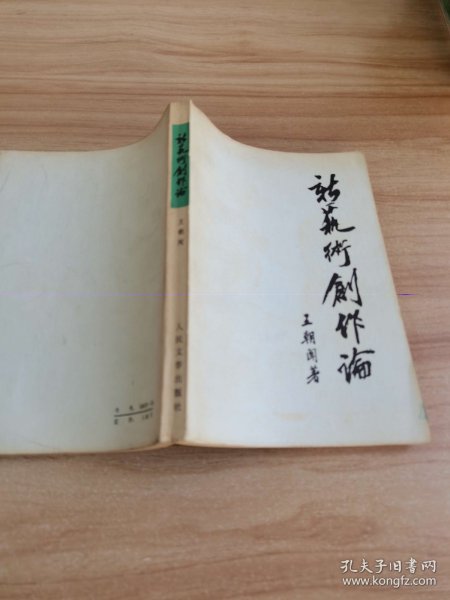 新藝術創作論
王朝聞著
新藝術創作論
王朝闻
人民文学出版社
书号
定价
孔夫子旧书网
www.kongfz.com